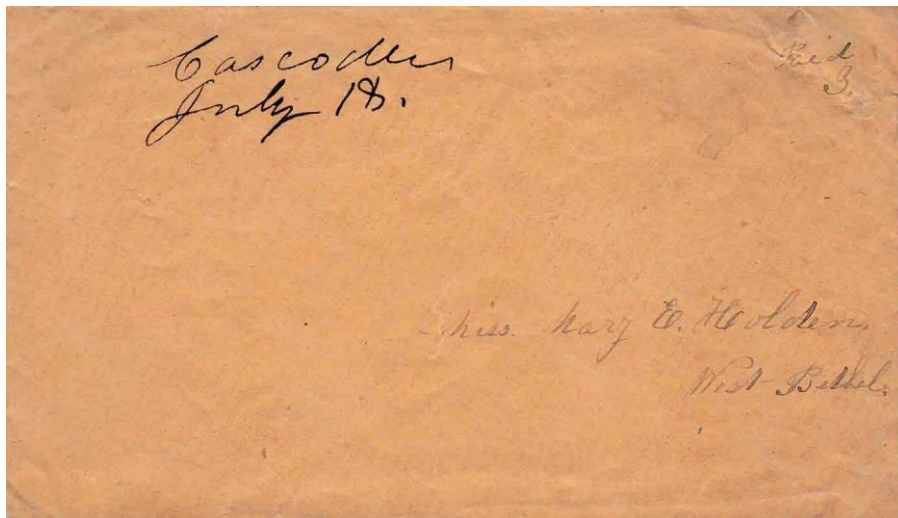 July 18.
Paid
3.
Miss. Mary E. Holden.
West Bethel.